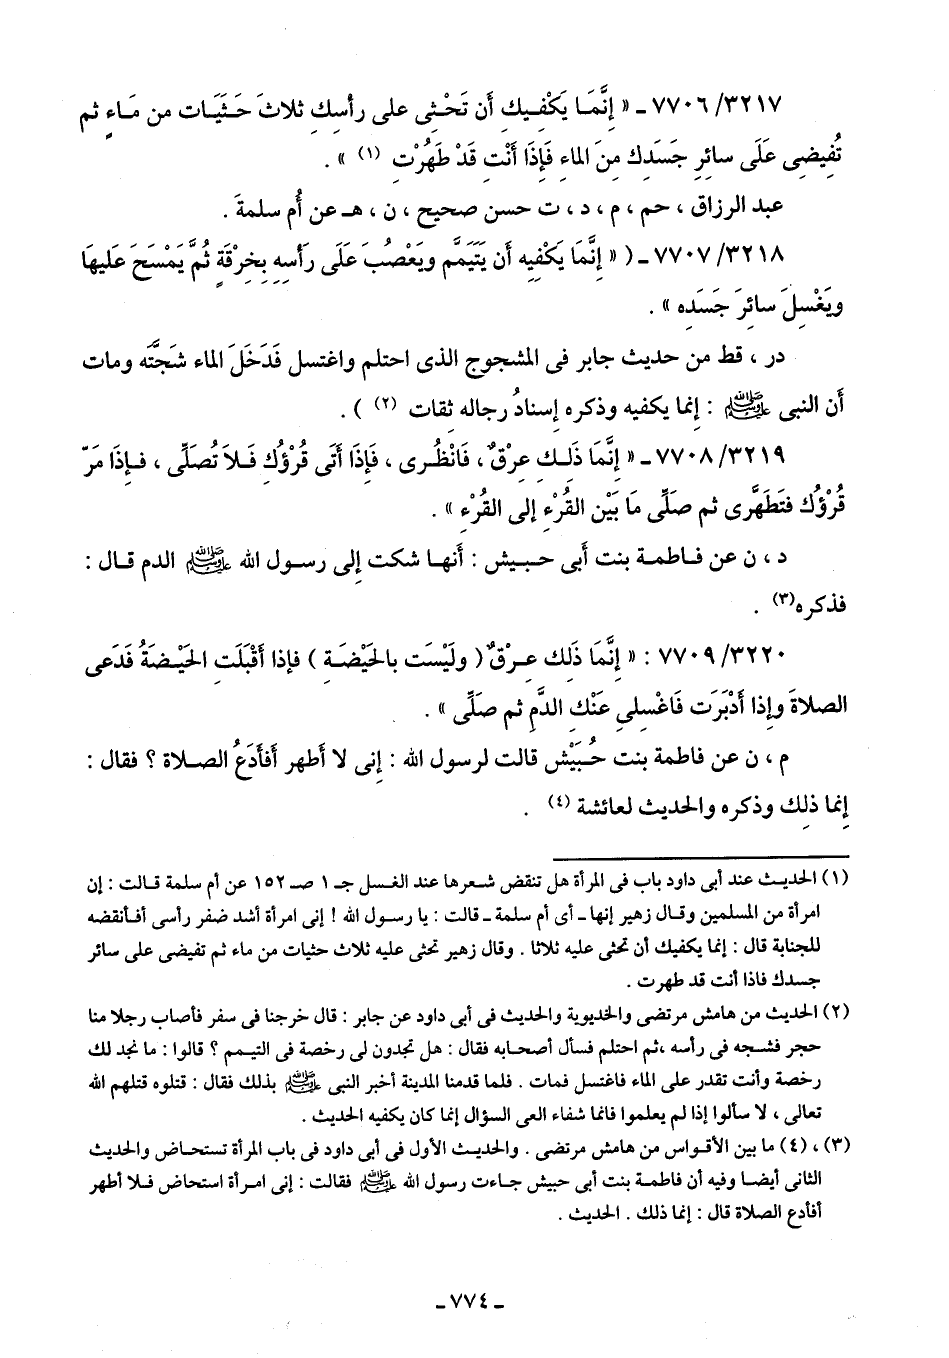 ٧٧٠٦/٣٢١٧ ـ « إِنَّمَا يَكْفِيكِ أن تَحْثِى على رأسِكِ ثلاثَ حَثَيَات من مَاءٍ ثم
تُفِيضِى عَلَى سائرِ جَسَدِك مِنَ الماءِ فَإِذَا أَنْتِ قَدْ طَهُرْتِ (١) » .
عبد الرزاق ، حم ، م ، د ، ت حسن صحيح ، ن ، هـ عن أُم سلمةَ .
٧٧٠٧/٣٢١٨ ـ ( « إِنَّمَا يَكْفِيه أن يَتَيَمَّم ويَعْصُبَ عَلَى رَأسِه بِخِرْقَةٍ ثُمَّ يَمْسَحَ عليها
ويَغْسِلَ سائِرَ جَسَدِه » .
در ، قط من حديث جابر فى المشجوج الذى احتلم واغتسل فَدَخَلَ الماء شَجَّتَه ومات
أَن النبى ﷺ : إنما يكفيه وذكره إِسنادُ رجاله ثقات (٢) ) .
٧٧٠٨/٣٢١٩ ـ « إِنَّمَا ذَلِكِ عِرْقٌ ، فَانْظُرِى ، فَإِذَا أَتَى قُرْؤُك فَلاَ تُصَلِّى ، فإِذَا مَرّ
قُرْؤُك فتَطَهَّرِى ثم صَلِّى مَا بَيْن القُرْءِ إِلى القُرْءِ » .
د ، ن عن فاطمة بنت أَبى حبيش : أَنها شكت إِلى رسول الله ﷺ الدم قال :
فذكره (٣) .
٧٧٠٩/٣٢٢٠ : « إِنَّمَا ذَلِك عِرْقٌ ( ولَيْسَت بالحَيْضَةِ ) فإذا أَقْبَلَتِ الحَيْضةُ فَدَعى
الصلاةَ وإِذا أَدْبَرَت فَاغْسِلِى عَنْكِ الدَّمِ ثم صَلِّى » .
م ، ن عن فاطمة بنت حُبَيْش قالت لرسول الله : إنى لا أَطهر أَفأَدَعُ الصلاة ؟ فقال :
إِنما ذلِك وذكره والحديث لعائشة (٤) .
(١) الحديث عند أبى داود باب فى المرأة هل تنقض شعرها عند الغسل جـ ١ صـ ١٥٢ عن أم سلمة قالت : إن
امرأة من المسلمين وقال زهير إنها ـ أى أم سلمة ـ قالت : يا رسول الله ! إنى امرأة أشد ضفر رأسى أفأنقضه
للجنابة قال : إنما يكفيك أن تحثى عليه ثلاثا . وقال زهير تحثى عليه ثلاث حثيات من ماء ثم تفيضى على سائر
جسدك فاذا أنت قد طهرت .
(٢) الحديث من هامش مرتضى والخديوية والحديث فى أبى داود عن جابر : قال خرجنا فى سفر فأصاب رجلا منا
حجر فشجه فى رأسه ،ثم احتلم فسأل أصحابه فقال : هل تجدون لى رخصة فى التيمم ؟ قالوا : ما نجد لك
رخصة وأنت تقدر على الماء فاغتسل فمات . فلما قدمنا المدينة أخبر النبى ﷺ بذلك فقال : قتلوه قتلهم الله
تعالى ، لا سألوا إذا لم يعلموا فانما شفاء العى السؤال إنما كان يكفيه الحديث .
(٣) ، (٤) ما بين الأقواس من هامش مرتضى . والحديث الأول فى أبى داود فى باب المرأة تستحاض والحديث
الثانى أيضا وفيه أن فاطمة بنت أبى حبيش جاءت رسول الله ﷺ فقالت : إنى امرأة استحاض فلا أطهر
أفأدع الصلاة قال : إنما ذلك . الحديث .
ـ ٧٧٤ ـ